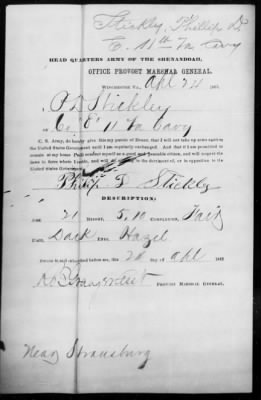 Stickley, Phillip D.
E. 11th Va Cavy
HEAD QUARTERS ARMY OF THE SHENANDOAH,
OFFICE PROVOST MARSHAL GENERAL,
WINCHESTER VA., Apl 24 1865.
I, P D Stickley
Co "E" 11 Va Cavy
C. S. Army, do hereby give this my parole of Honor, that I will not take up arms against the
United States Government until I am regularly exchanged. And that if I am permitted to
remain at my home I will conduct myself as a good and peaceable citizen, and will respect the
laws in force where I reside, and will do nothing to the detriment of, or in opposition to the
United States Government.
Philip D Stickley
DESCRIPTION:
AGE 21 HEIGHT, 5.10 COMPLEXION, Fair
HAIR, Dark EYES, Hazel
sworn before me, this 24 day of Apl 1865
PROVOST MARSHAL GENERAL.
Near Strausburg